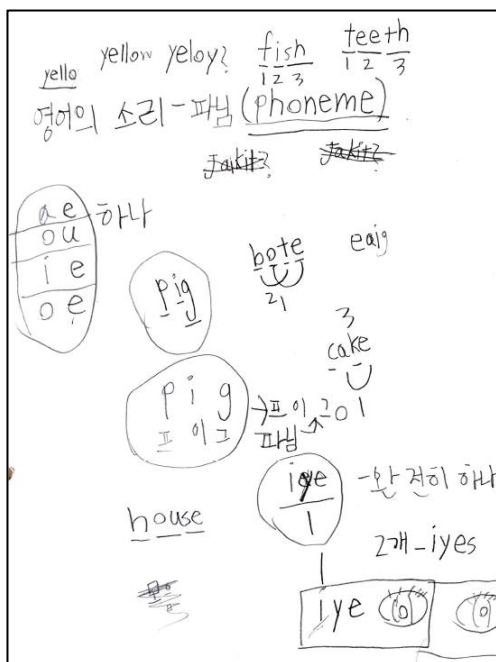 yello yellow yeloy? fish teeth
1 2 3 1 2 3
영어의 소리 - 파님 (phoneme)
Jaikit? Jakit?
a e - 하나
o u
i e
o e
pig
bote eaig
2 1
3
cake
1
p i g → 프 이 그
프 이 그 파님
iye - 완전히 하나
1
house
2개 - iyes
iye